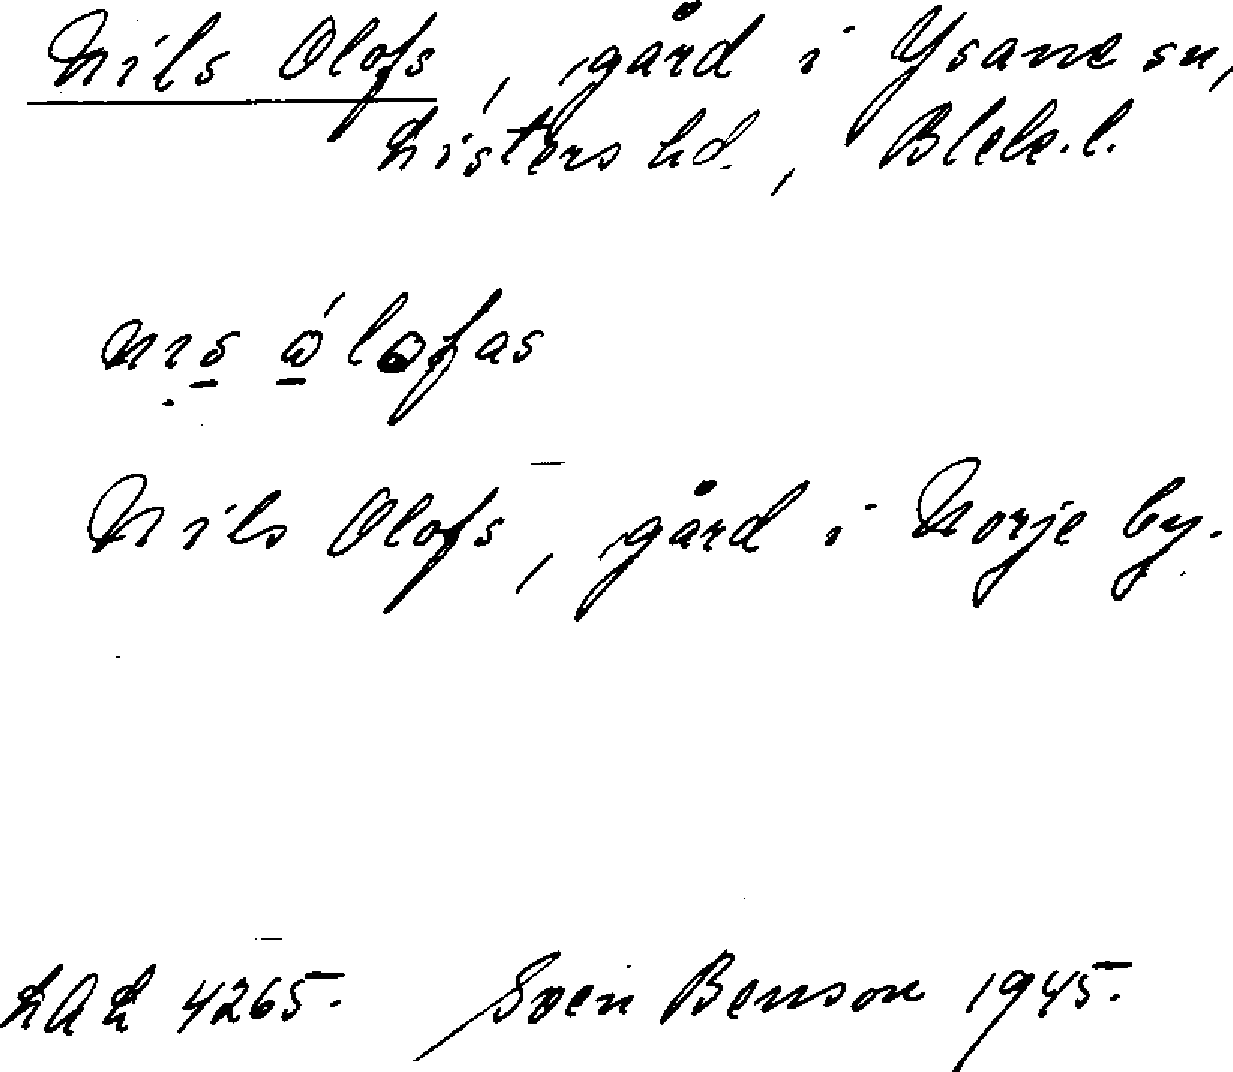 Nils Olofs, gård i Ysane sn,
Listers hd., Blek.l.
Nils Olofs, gård i Norje by.
LAL 4265. Sven Benson 1945.